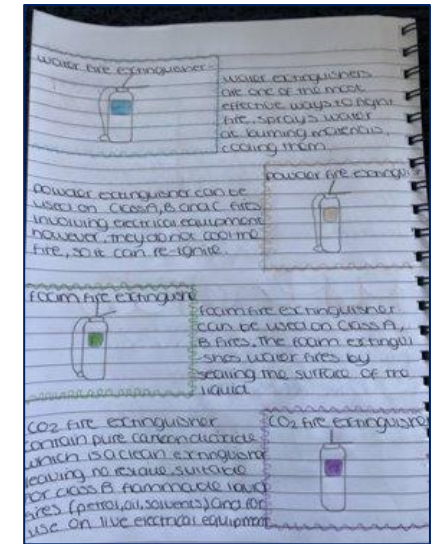 water fire extinguisher:
water extinguishers
are one of the most
effective ways to fight
fire, sprays water
at burning materials,
cooling them.
powder fire extinguish
powder extinguisher can be
used on class A, B and C fires
involving electrical equipment
however, they do not cool the
fire, so it can re-ignite.
foam fire extinguishe
foam fire extinguisher
can be used on class A,
B fires, The foam extingui
-shes water fires by
sealing the surface of the
liquid
CO2 fire extinguisher
CO2 fire extinguisher
contain pure carbon dioxide
which is a clean extinguisher
leaving no residue, suitable
for class B flammable liquid
fires (petrol, oil, solvents) and for
use on live electrical equipment